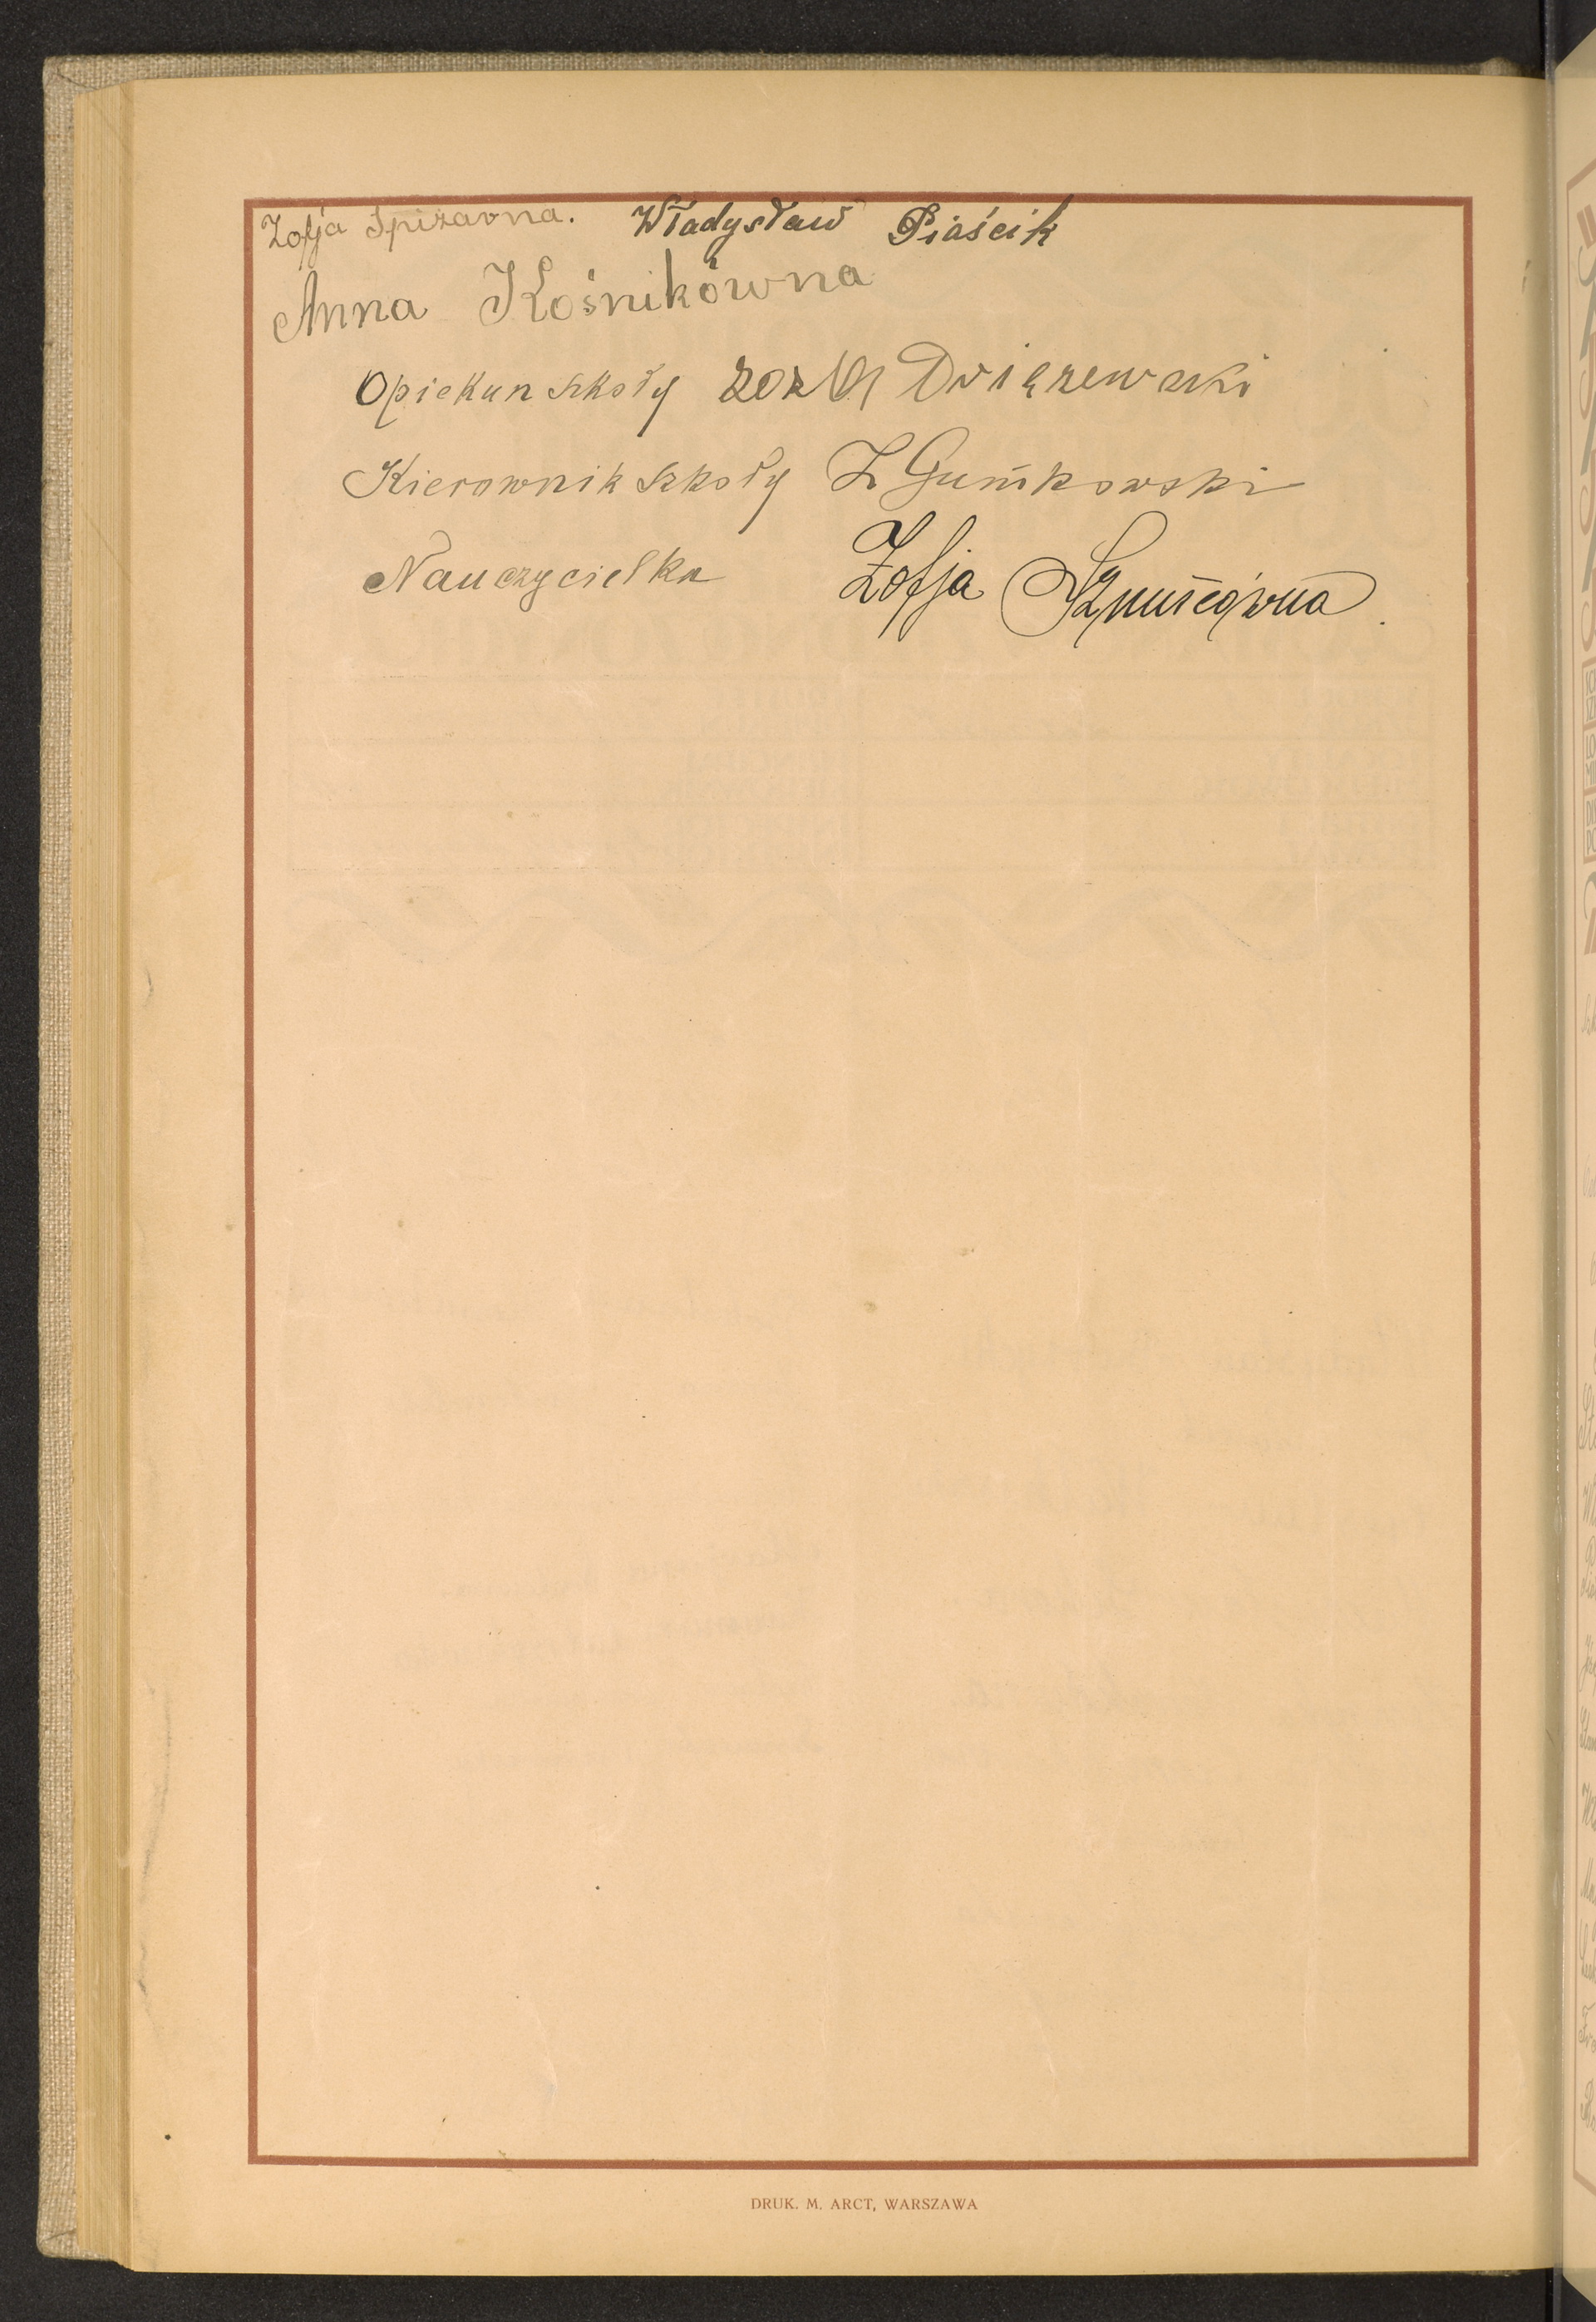 Zofja Spiżarna. Władysław Piaścik
Anna Kośnikówna
Opiekun szkoły
Kierownik szkoły Z Gumkowski
Nauczycielka Zofja
DRUK. M. ARCT, WARSZAWA